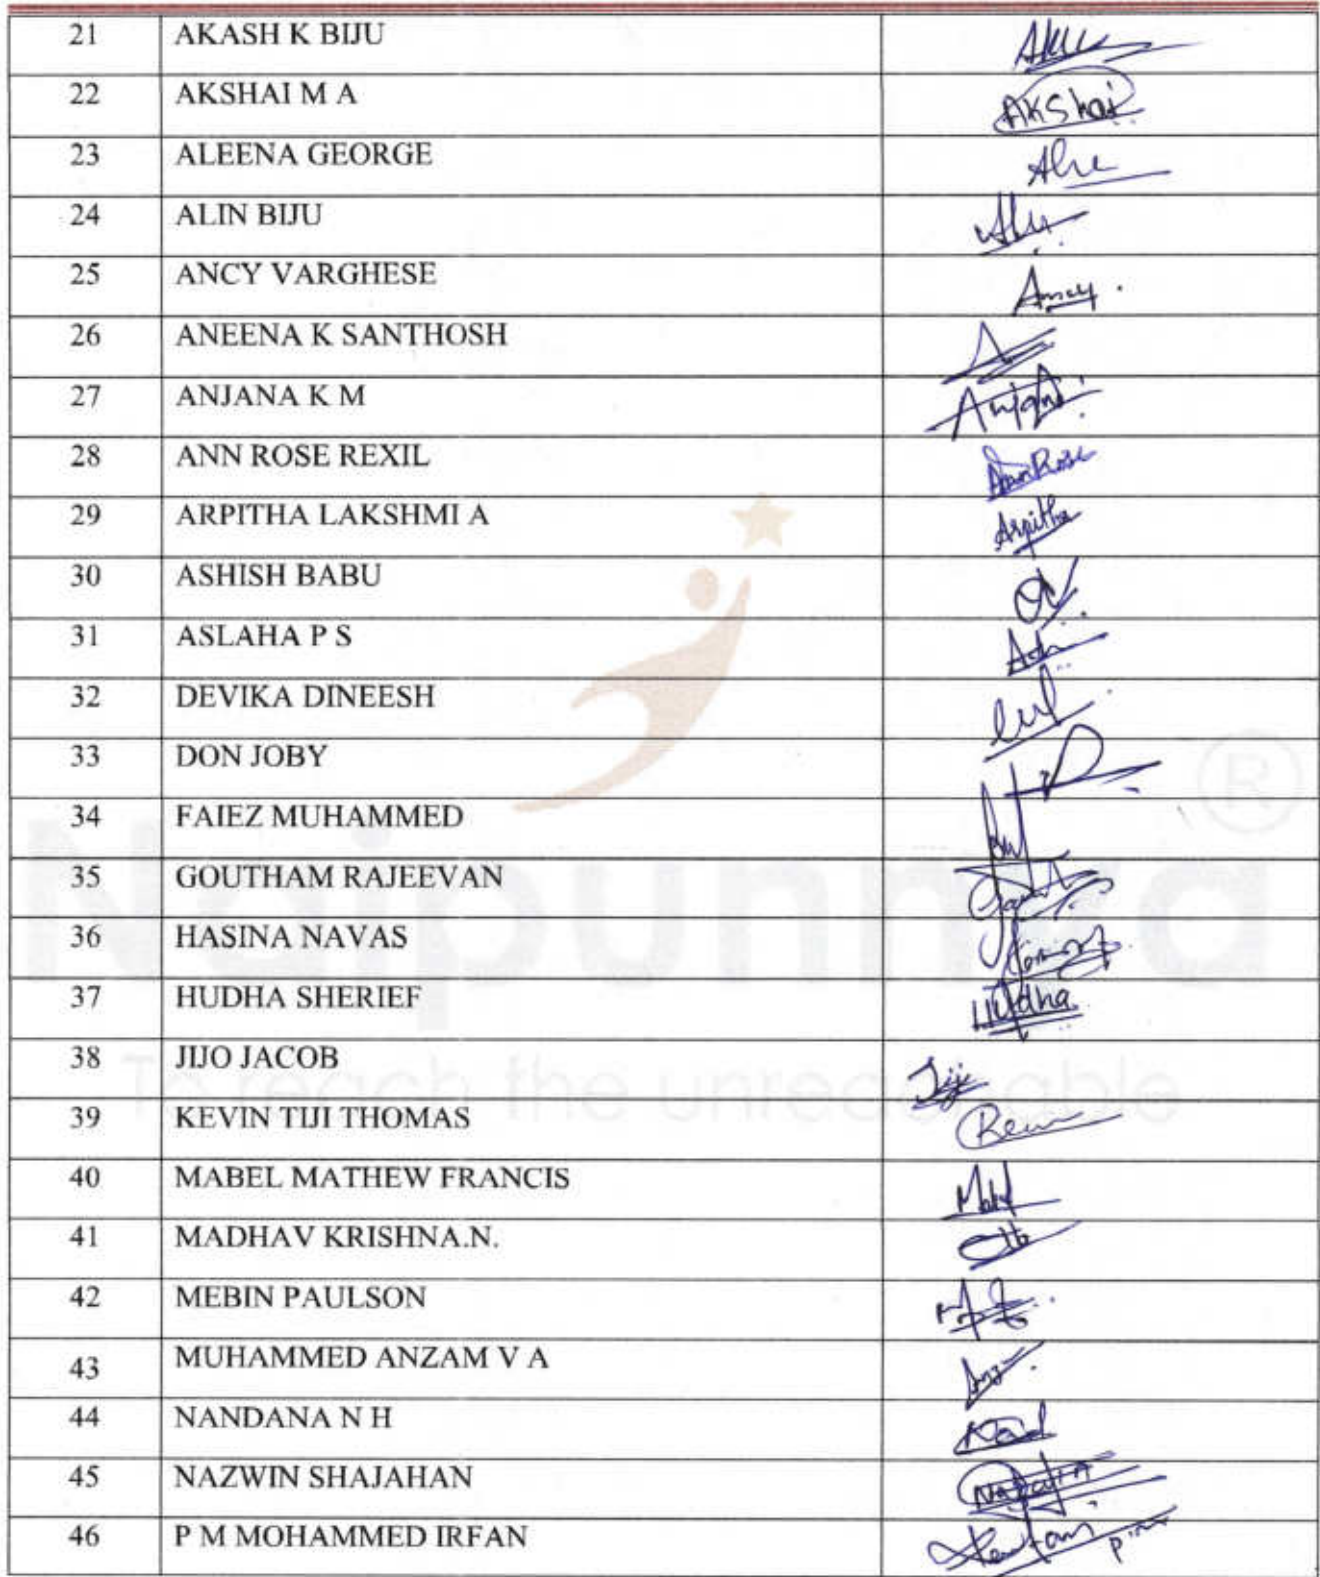 21 AKASH K BIJU
22 AKSHAI M A AKShai
23 ALEENA GEORGE
24 ALIN BIJU
25 ANCY VARGHESE Ancy
26 ANEENA K SANTHOSH
27 ANJANA K M Anjana
28 ANN ROSE REXIL Ann Rose
29 ARPITHA LAKSHMI A Arpitha
30 ASHISH BABU
31 ASLAHA P S
32 DEVIKA DINEESH
33 DON JOBY
34 FAIEZ MUHAMMED
35 GOUTHAM RAJEEVAN
36 HASINA NAVAS
37 HUDHA SHERIEF Hudha
38 JIJO JACOB
39 KEVIN TIJI THOMAS
40 MABEL MATHEW FRANCIS
41 MADHAV KRISHNA.N.
42 MEBIN PAULSON
43 MUHAMMED ANZAM V A
44 NANDANA N H
45 NAZWIN SHAJAHAN
46 P M MOHAMMED IRFAN
Naipunnya ®
To reach the unreachable